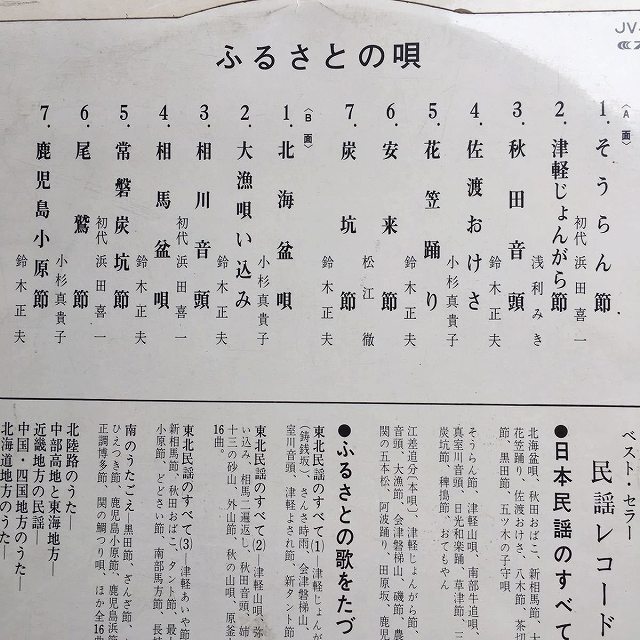 JV-
ふるさとの唄
〈A面〉
1. そうらん節 初代 浜田喜一
2. 津軽じょんがら節 浅利みき
3. 秋田音頭 鈴木正夫
4. 佐渡おけさ 小杉真貴子
5. 花笠踊り 鈴木正夫
6. 安来節 松江徹
7. 炭坑節 鈴木正夫
〈B面〉
1. 北海盆唄 小杉真貴子
2. 大漁唄い込み 鈴木正夫
3. 相川音頭 初代 浜田喜一
4. 相馬盆唄 鈴木正夫
5. 常磐炭坑節 初代 浜田喜一
6. 尾鷲節 小杉真貴子
7. 鹿児島小原節 鈴木正夫
ベスト・セラー
民謡レコード
●日本民謡のすべて
北海盆唄、秋田おばこ、新相馬節、
花笠踊り、佐渡おけさ、八木節、茶切
節、黒田節、五ツ木の子守唄
そうらん節、津軽山唄、南部牛追唄、
真室川音頭、日光和楽踊、草津節、三
炭坑節、稗搗節、おてもやん
江差追分〔本唄〕、津軽じょんがら節、
音頭、大漁節、会津磐梯山、磯節、農
関の五本松、阿波踊り、田原坂、鹿児
●ふるさとの歌をたづ
東北民謡のすべて(1)─津軽じょんが
(鋳銭坂)、さんさ時雨、会津磐梯山、
室川音頭、津軽よされ節、新タント節
東北民謡のすべて(2)─津軽山唄、弥
い込み、相馬二遍返し、秋田音頭、姉
十三の砂山、外山節、秋の山唄、原釜
16曲。
東北民謡のすべて(3)─津軽あいや節
新相馬節、秋田おばこ、タント節、最上
小原節、どどさい節、南部馬方節、長
南のうたごえ─黒田節、さんざ節、
ひえつき節、鹿児島小原節、鹿児島浜節
正調博多節、関の鯛つり唄、ほか全16曲
北陸路のうた─
中部高地と東海地方─
近畿地方の民謡─
中国・四国地方のうた─
北海道地方のうた─